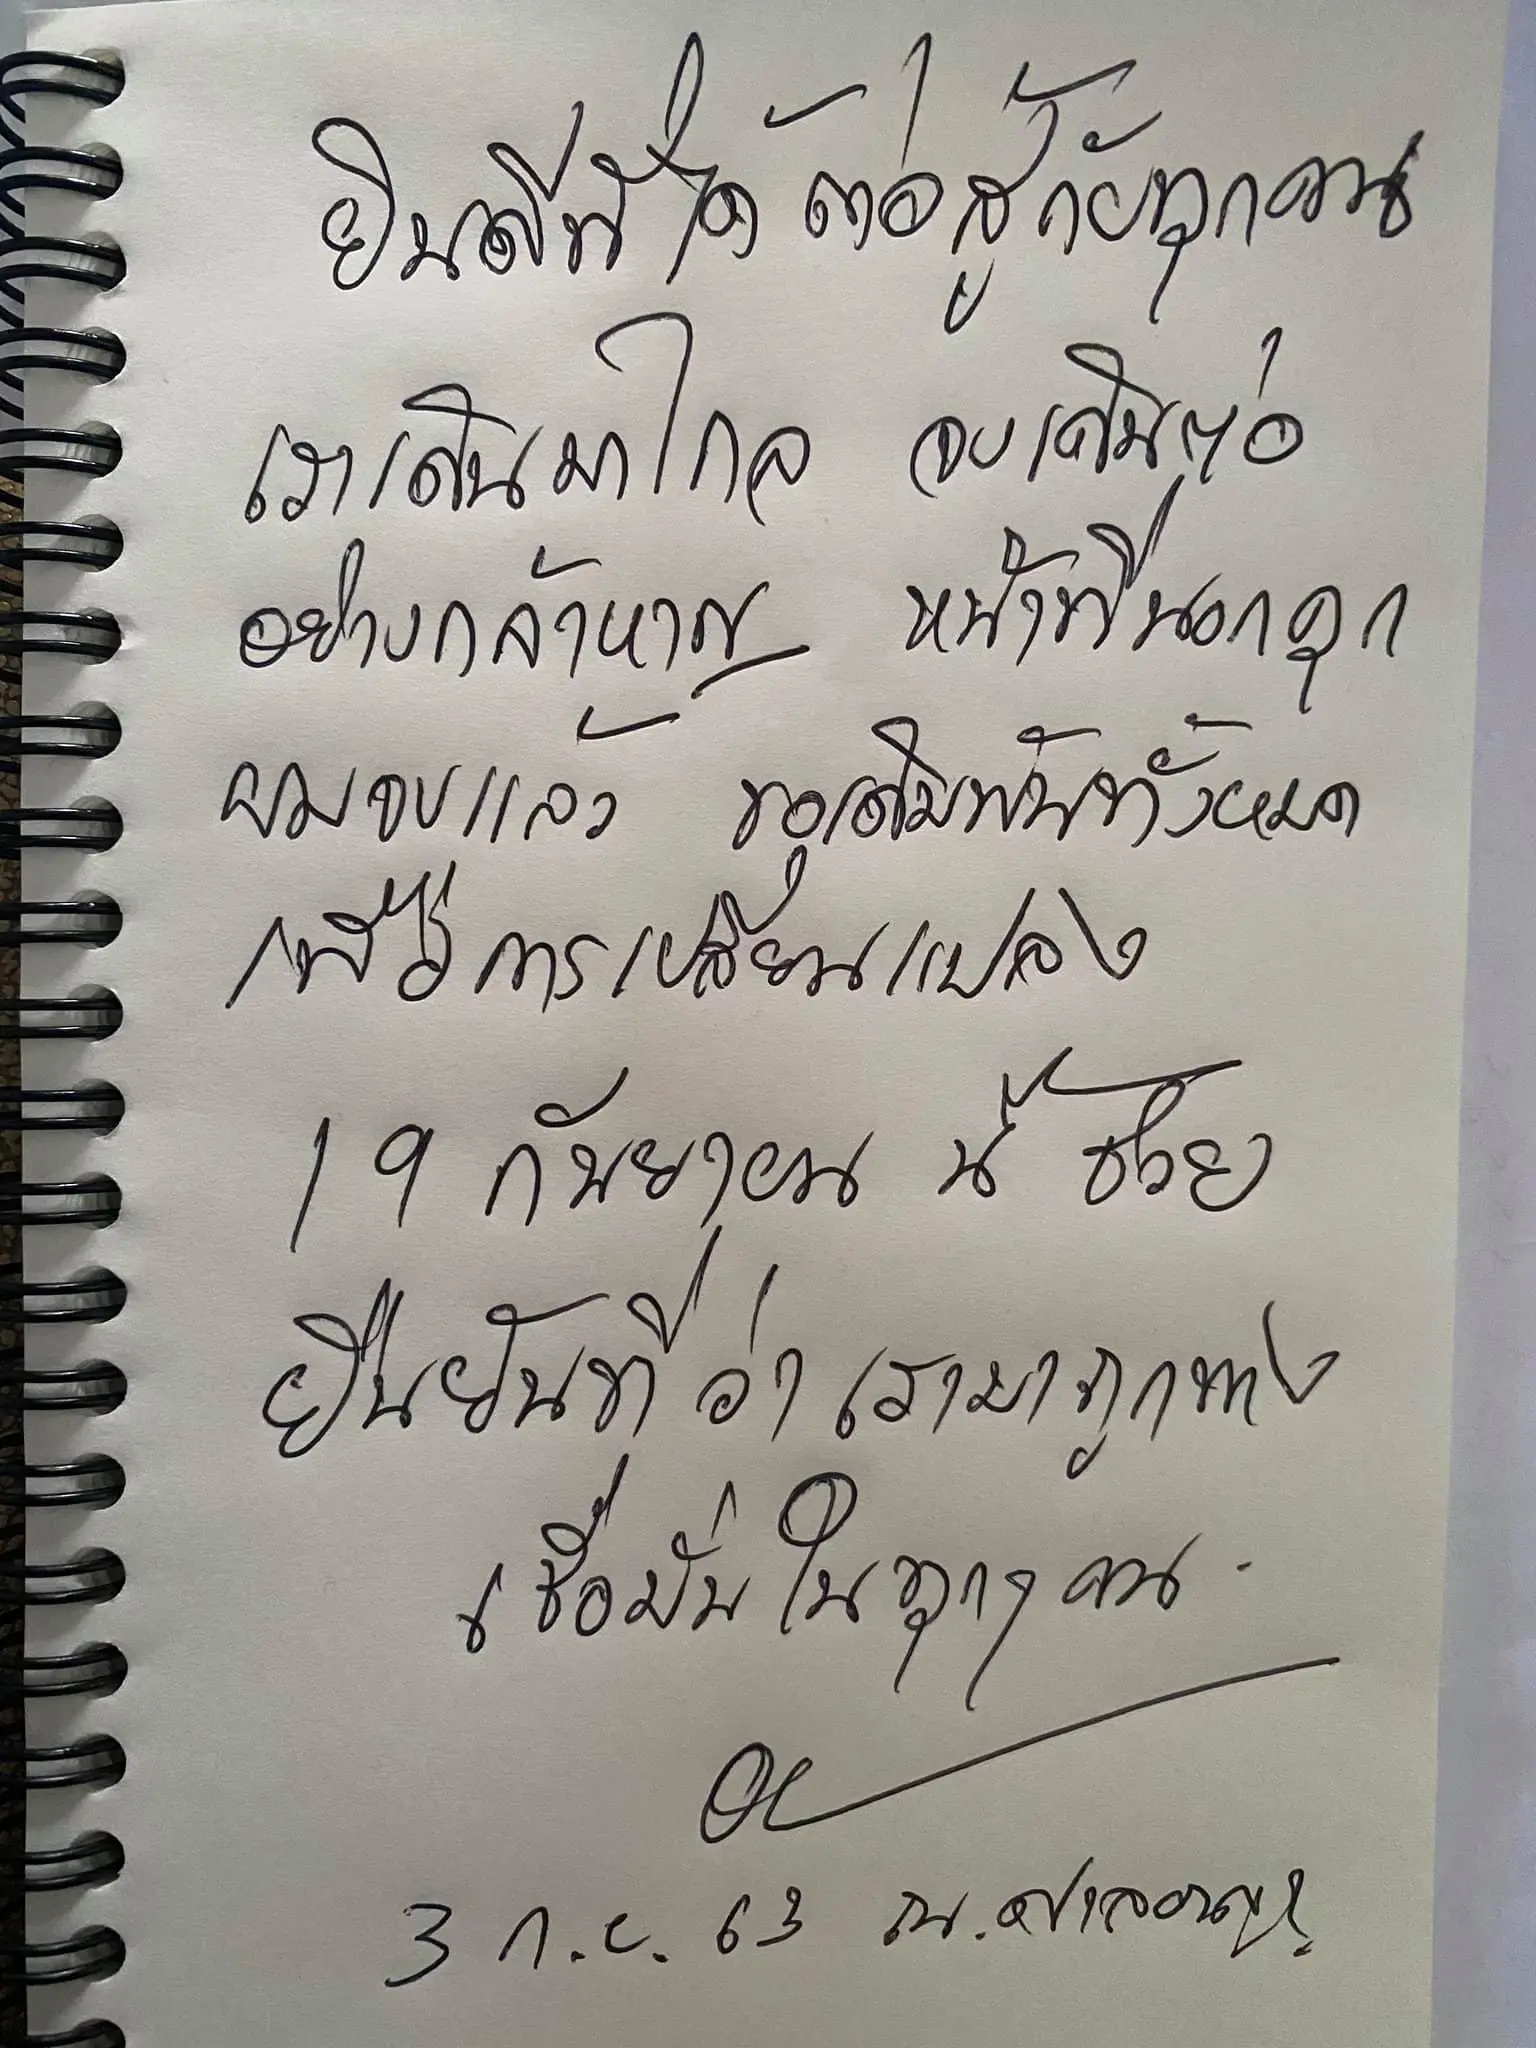 ยินดีที่ได้ต่อสู้กับทุกคน
เราเดินมาไกล จงเดินต่อ
อย่างกล้าหาญ หน้าที่นอกคุก
ผมจบแล้ว ขอเดิมพันทั้งหมด
เพื่อการเปลี่ยนแปลง
19 กันยายน นี้ ช่วย
ยืนยันทีว่า เรามาถูกทาง
เชื่อมั่นในทุกๆ คน
3 ก.ย. 63 ณ. ศาลอาญา